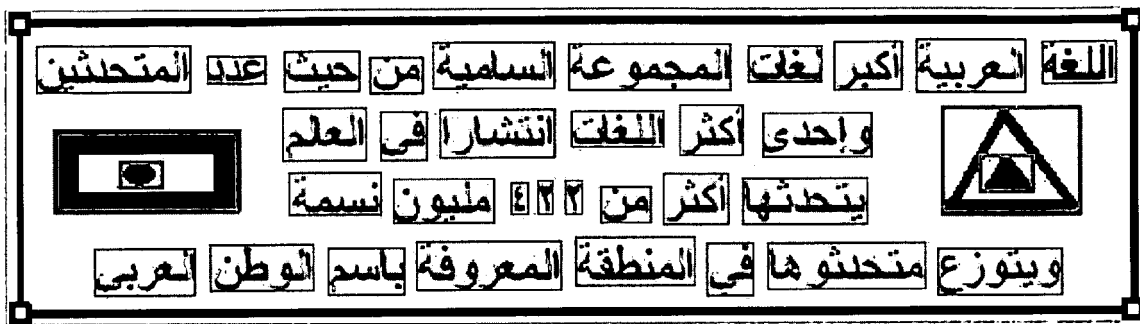 اللغة العربية أكبر لغات المجموعة السامية من حيث عدد المتحدثين
وإحدى أكثر اللغات انتشارا في العالم
يتحدثها أكثر من ٤٢٢ مليون نسمة
ويتوزع متحدثوها في المنطقة المعروفة باسم الوطن العربي